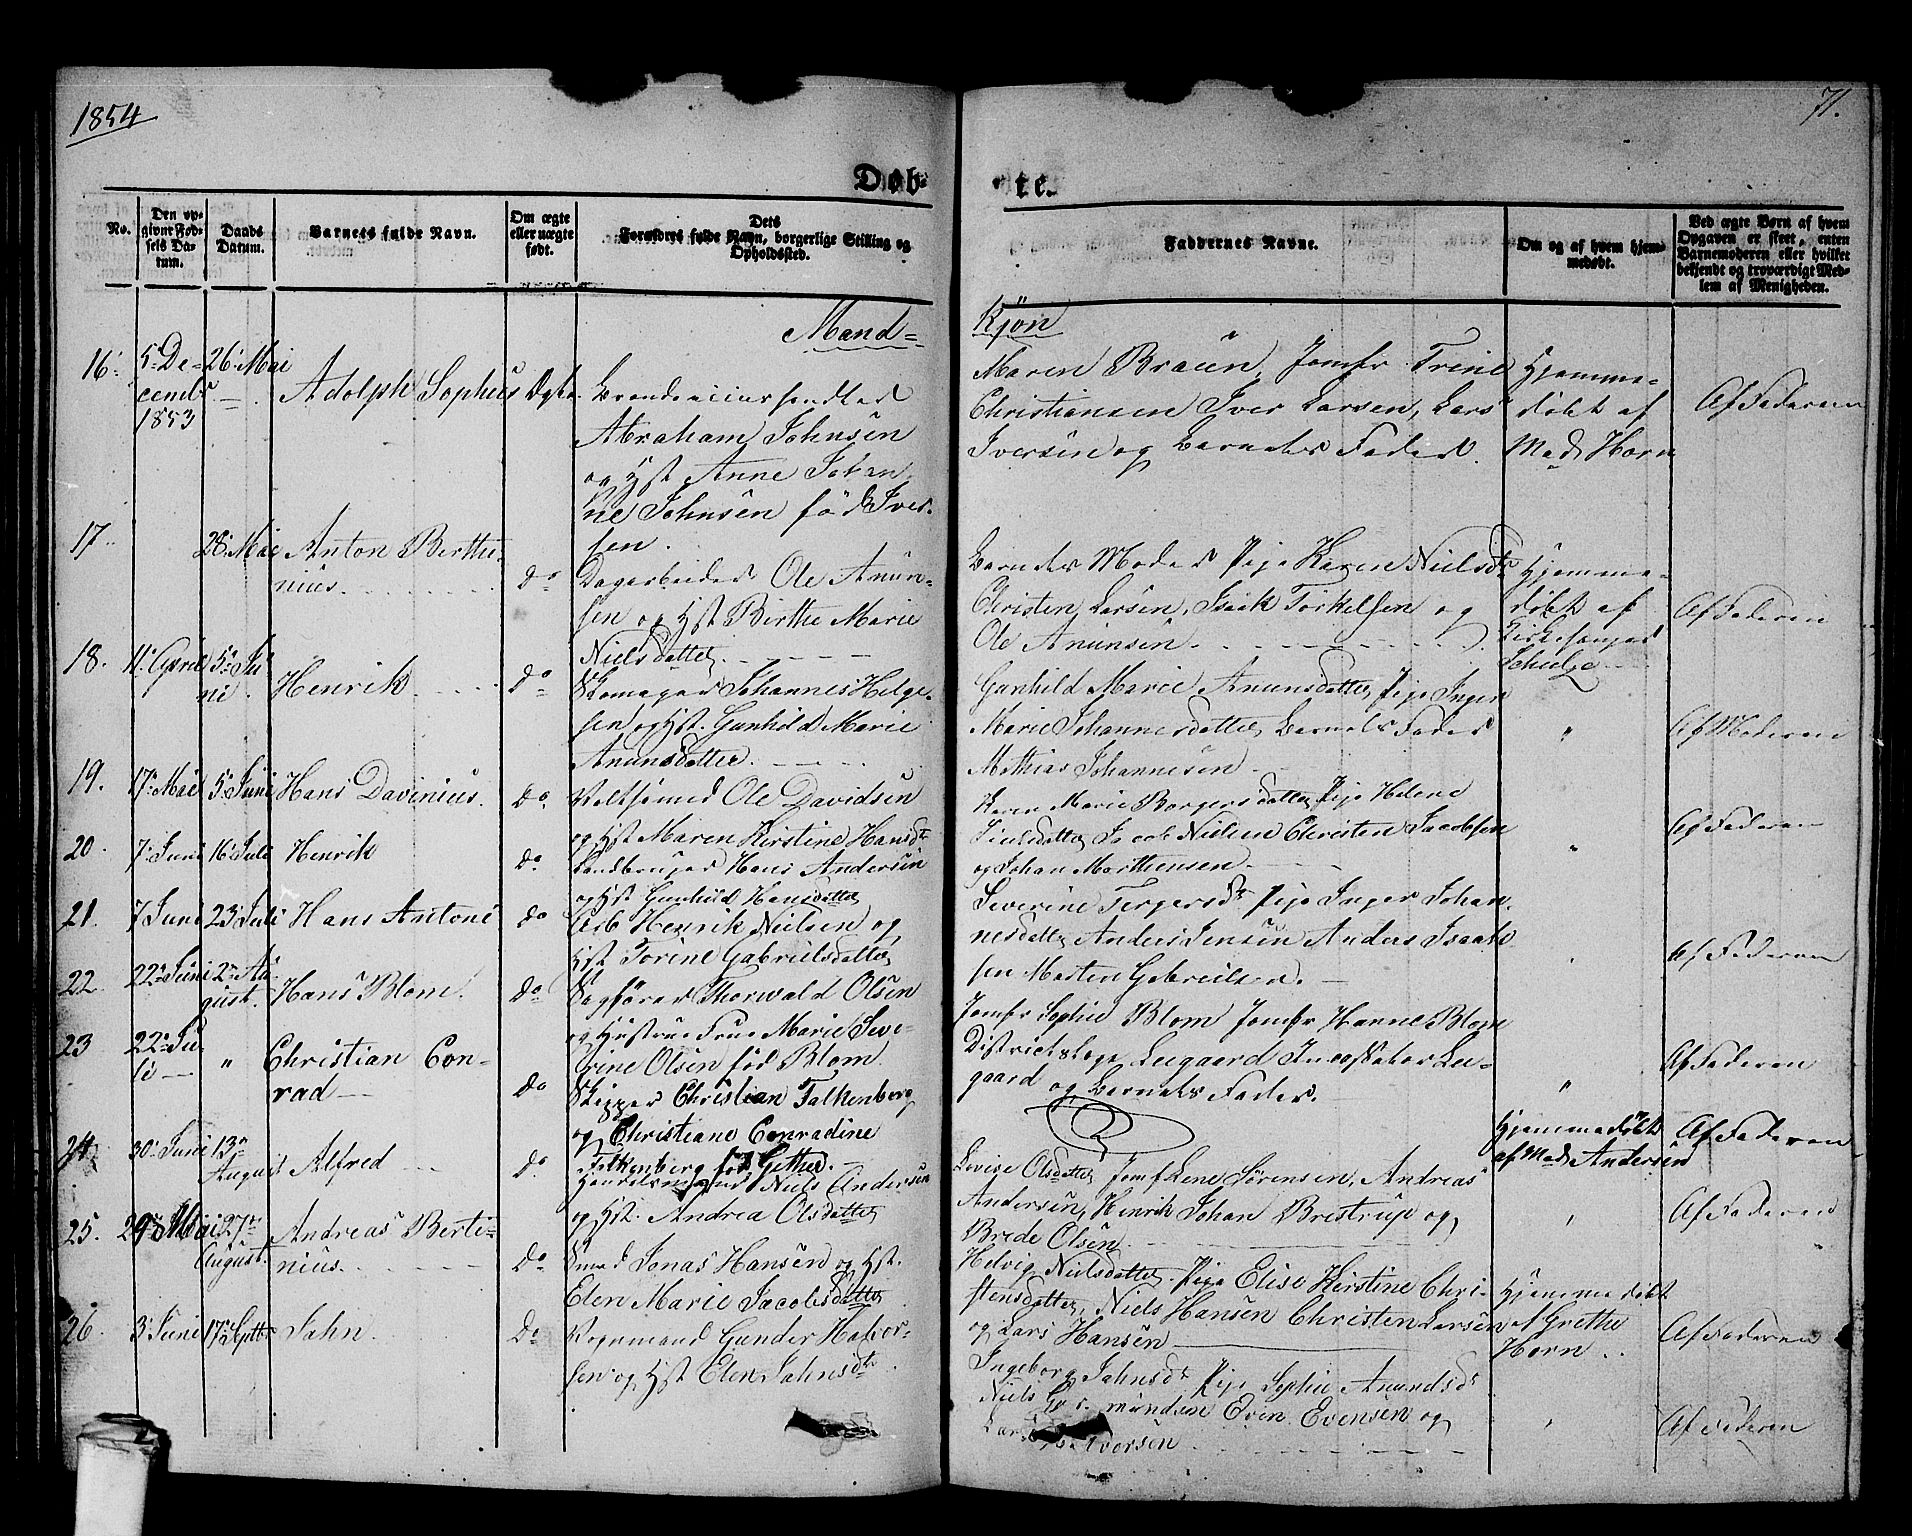 1854
71.
Døb-
te.
No.
Den op-
givne Fød-
sels Da-
tum.
Daabs
Datum.
Barnets fulde Navn.
Om ægte
eller uægte
født.
Dets
Forældres fulde Navn, borgerlige Stilling og
Opholdssted.
Faddernes Navne.
Om og af hvem hjem-
medøbt.
Ved ægte Børn af hvem
Opgaven er skeet, enten
Barnemoderen eller hvilket
bekjendt og troværdigt Med-
lem af Menigheden.
Mand=
Kjøn
16.
5. De-
cemb
1853
26. Mai
Adolph Sophus
Ægte
Abraham Johnsen
og Hst Anne Johan
ne Johnsen fød Iver-
sen.
Maren Braün, Jomfr Trine
Christiansen Iver Larsen, Lars
Iversen og Barnets Fader.
Hjemme-
døbt af
Mad. Horn
Af Faderen
17.
28. Mai
Anton Berthi-
nius.
Do
Dagarbeider Ole Anun-
sen og Hst Birthe Marie
Nielsdatter
Barnets Moder Pige Karen Nielsdr
Christen Larsen, Isak Torkelsen og
Ole Anunsen
Hjemme-
døbt af
Kirkesanger
Schulze
Af Faderen
18.
11. April
5. Ju-
ni
Henrik
Do
Skomager Johannes Helge-
sen og Hst. Gunhild Marie
Anunsdatter.
Gunhild Marie Anunsdatter, Pige Inger
Marie Johannesdatter Barnets Fader
Mathias Johannesen
"
Af Moderen
19.
17. Mai
5. Juni
Hans Davinius.
Do
Ole Davidsen
og Hst Maren Kirstine Hansdr
Karen Marie Borgersdatter, Pige Helene
Nielsdatter Jacob Nielsen Christen Jacobsen
og Johan Marthinsen
"
Af Faderen
20.
7. Juni
16. Juli
Henrik
Do
Landbruger Hans Andersen
og Hst. Gunhild Hansdatter
Severine Torgersdr Pige Inger Johan-
nesdatter Anders Jensen Anders Isaak-
sen Morten Gabrielsen.
Af Faderen
21.
7. Juni
23. Juli
Hans Antoni
Do
Arb Henrik Nielsen og
Hst Torine Gabrielsdatter
22.
22. Juni
2. Au-
gust.
Hans Blom.
Do
Sagfører Thorwald Olsen
og Hustrue Frue Marie Seve-
rine Olsen fød Blom.
Jomfr Sophie Blom Jomfr Hanne Blom
Districtslæge Leegaard Leu-
gaard og Barnets Fader.
"
Af Faderen
23
22. Ju-
li
"
Christian Con-
rad
Do
Skipper Christian Falkenberg
og Christiane Conradine
Falkenberg fød Gether.
Hjemmedøbt
af Mad. Andersen
Af Faderen
24.
30. Juni
13.
August
Alfred
Do
Handelsmand Niels Andersen
og Hst. Andrea Olsdatter
Lovise Olsdatter Jomf Lene Sørensen, Andreas
Andersen, Henrik Johan Brestrup og
Brede Olsen
Af Faderen
25.
29. Mai
27.
August.
Andreas Berti-
nius.
Do
Smed Jonas Hansen og Hst.
Elen Marie Jacobsdatter
Helvig Nielsdatter, Pige Elise Kirstine Chri-
stensdatter, Niels Hansen Christen Larsen
og Lars Hansen
Hjemmedøbt
af Grethe
Horn
Af Faderen
26.
3. Juni
17. Septbr
Jahn.
Do
Vognmand Gunder Halvor-
sen og Hst Elen Jahnsdr
Ingeborg Jahnsdr Pige Sophie Anundsdr
Niels Evin Evensen og
Af Faderen